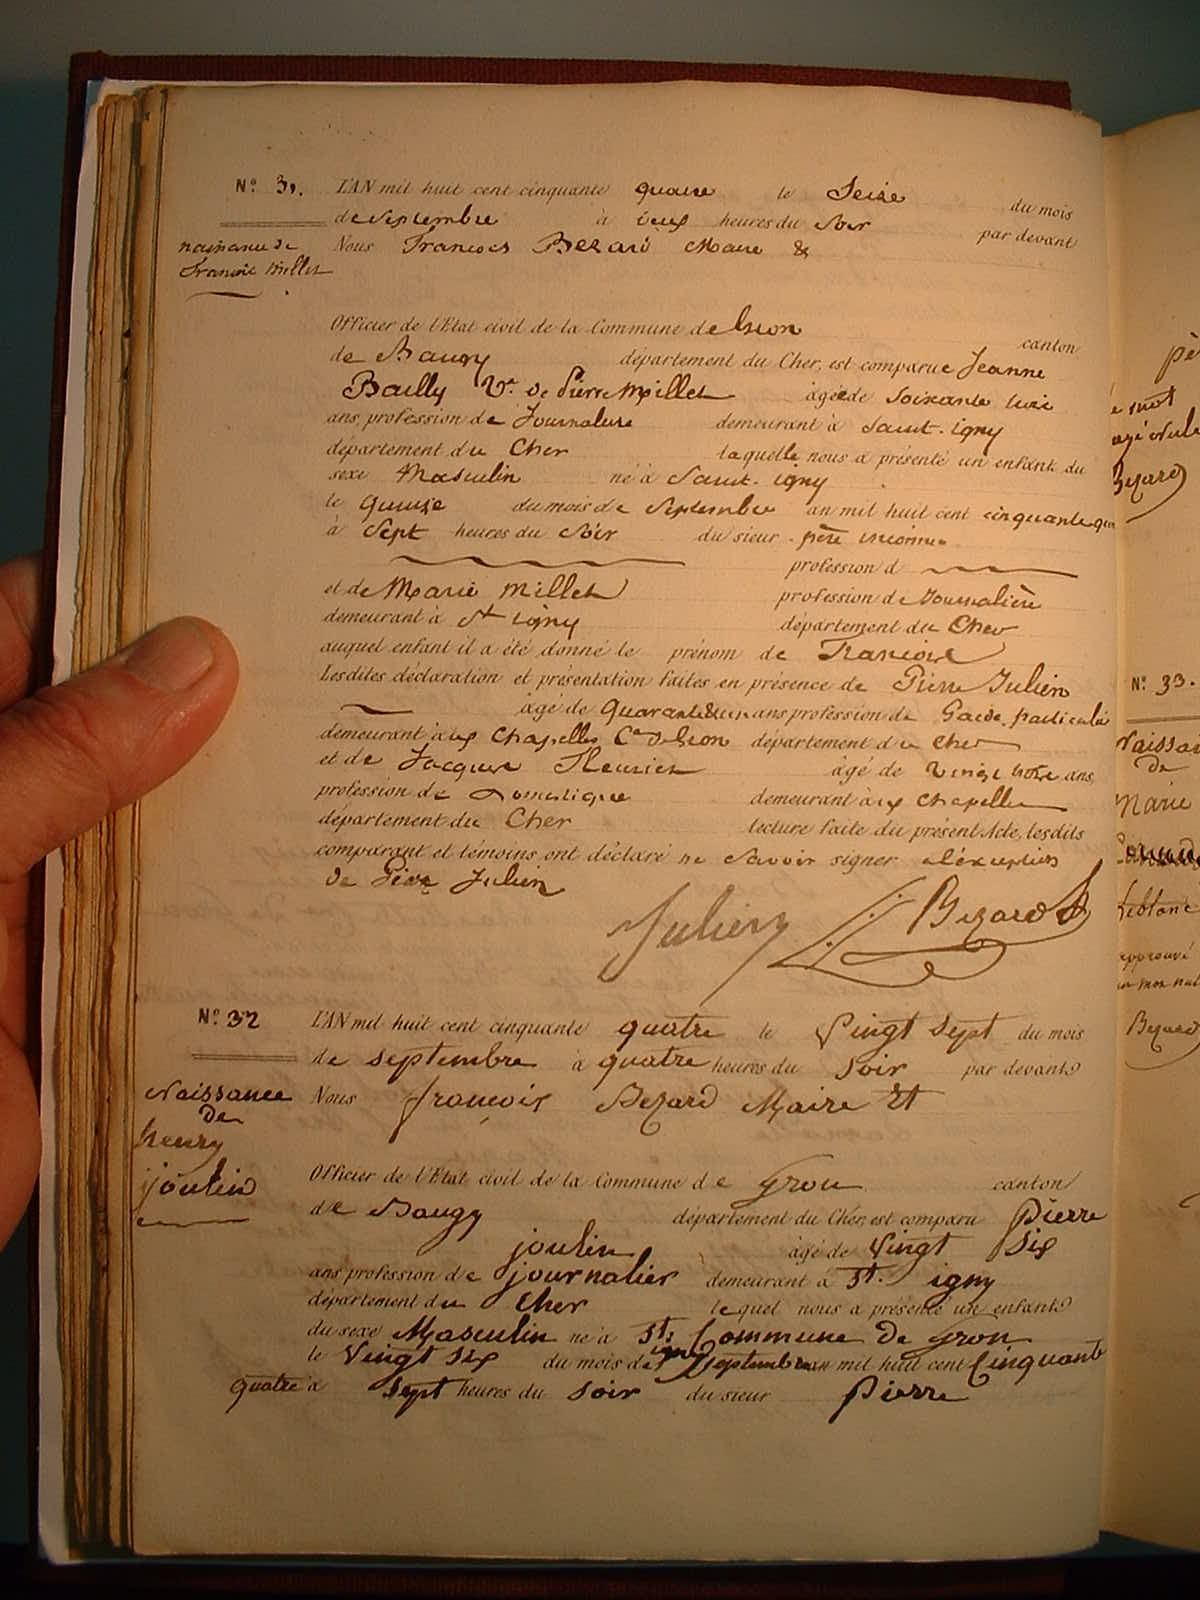 Nº 31. L'AN mil huit cent cinquante quatre le Seize du mois
de Septembre à deux heures du Soir par devant
naissance de
François Millet
Nous François Bezard Maire &
Officier de l'Etat civil de la Commune de Gron canton
de Baugy département du Cher, est comparue Jeanne
Bailly Ve. de Pierre Millet agée de Soixante
ans, profession de Journalière demeurant à Saint-igny
département du Cher laquelle nous a présenté un enfant du
sexe Masculin né à Saint-igny
le Quinze du mois de Septembre an mil huit cent cinquante qua
à Sept heures du Soir du sieur père inconnu
profession d
et de Marie Millet profession de Journalière
demeurant à St igny département du Cher
auquel enfant il a été donné le prénom de François
Lesdites déclaration et présentation faites en présence de Pierre Julien
âgé de quarante ans profession de Garde particulié
demeurant aux Chapelles Cne de Gron département du Cher
et de Jacques Fleurier âgé de Vingt trois ans,
profession de Domestique demeurant aux Chapelles
département du Cher lecture faite du présent Acte, lesdits
comparant et témoins ont déclaré ne Savoir signer à l'éxception
de Pierre Julien
Julien Bezard
Nº 32 L'AN mil huit cent cinquante quatre le Vingt Sept du mois
de septembre à quatre heures du Soir par devant
Naissance
de
henry
joulin
Nous françois Bezard Maire Et
Officier de l'Etat civil de la Commune de Gron canton
de Baugy département du Cher, est comparu Pierre
joulin âgé de Vingt Six
ans profession de journalier demeurant à St. igny
département du Cher lequel nous a présenté un enfant
du sexe Masculin né à St. igny Commune De Gron
le Vingt Six du mois de Septembre an mil huit cent Cinquant
quatre à Sept heures du Soir du sieur Pierre
pè
Bezard
Nº 33.
Naissan
de
Marie
Leblanc
approuvé
Bezard